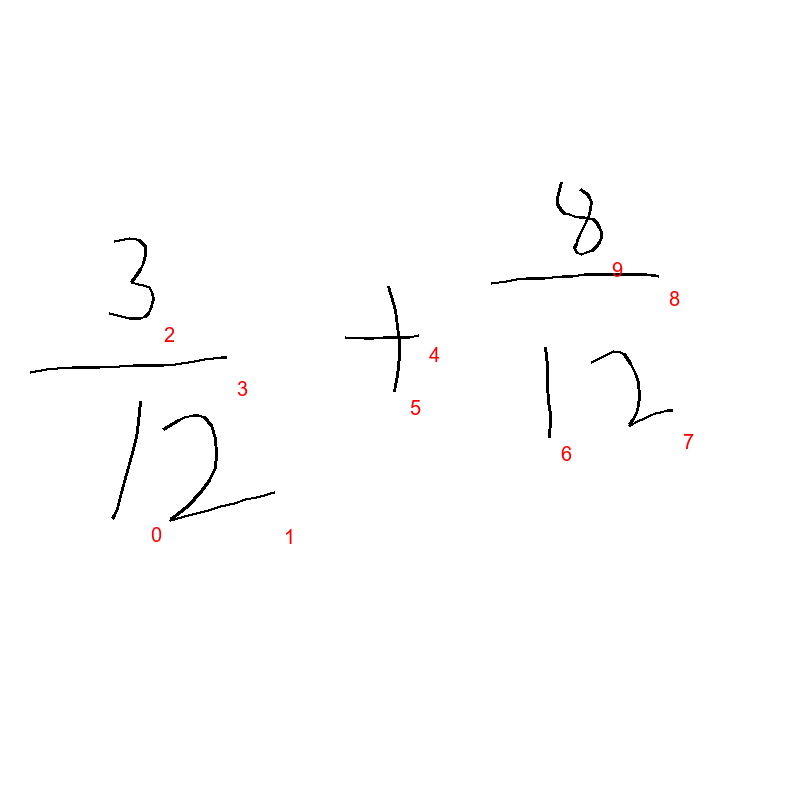 3/12 + 8/12
2 3 0 1 4 5 9 8 6 7